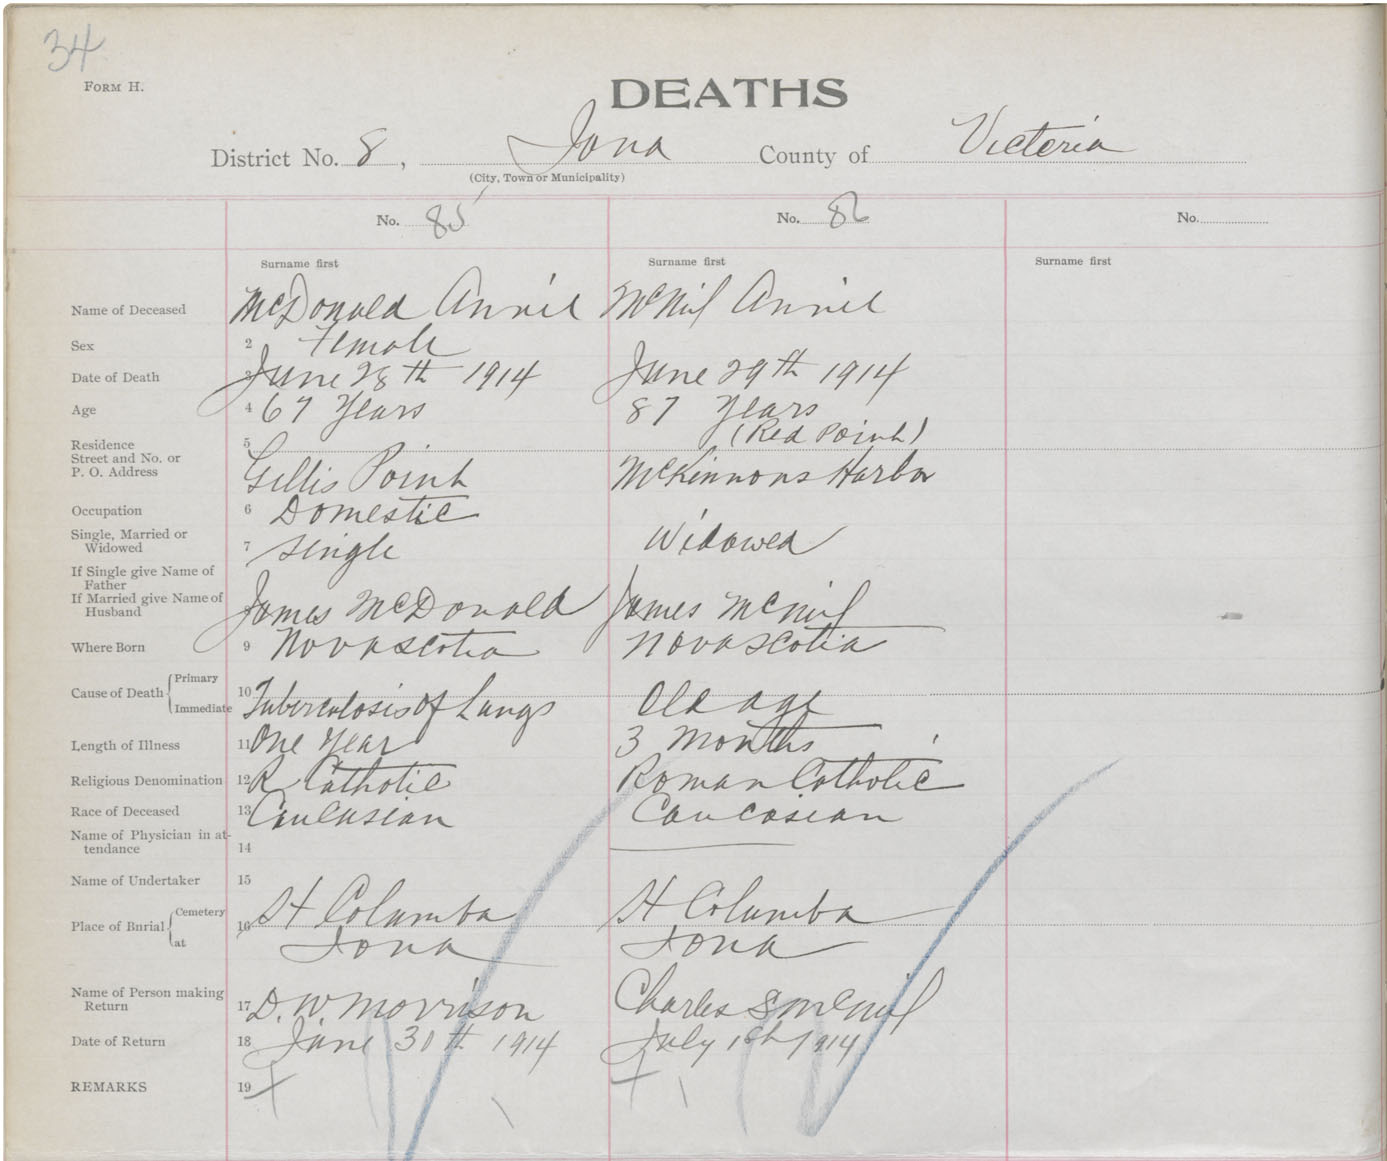 34
FORM H.
DEATHS
District No. 8, Iona County of Victoria
(City, Town or Municipality)
No. 85 No. 86 No.
Surname first Surname first Surname first
Name of Deceased McDonald Annie McNeil Annie
Sex 2 Female
Date of Death 3 June 28th 1914 June 29th 1914
Age 4 67 Years 87 Years
Residence 5 (Red Point)
Street and No. or
P. O. Address Gillis Point McKinnons Harbor
Occupation 6 Domestic
Single, Married or
Widowed 7 Single Widowed
If Single give Name of
Father
If Married give Name of
Husband James McDonald James McNeil
Where Born 9 Nova Scotia Nova Scotia
Cause of Death Primary
Immediate 10 Tuberculosis of Lungs Old age
Length of Illness 11 One Year 3 Months
Religious Denomination 12 R Catholic Roman Catholic
Race of Deceased 13 Caucasian Caucasian
Name of Physician in at-
tendance 14
Name of Undertaker 15
Place of Burial Cemetery 16 St Columba St Columba
at Iona Iona
Name of Person making
Return 17 D. W. Morrison Charles S McNeil
Date of Return 18 June 30th 1914 July 1914
REMARKS 19